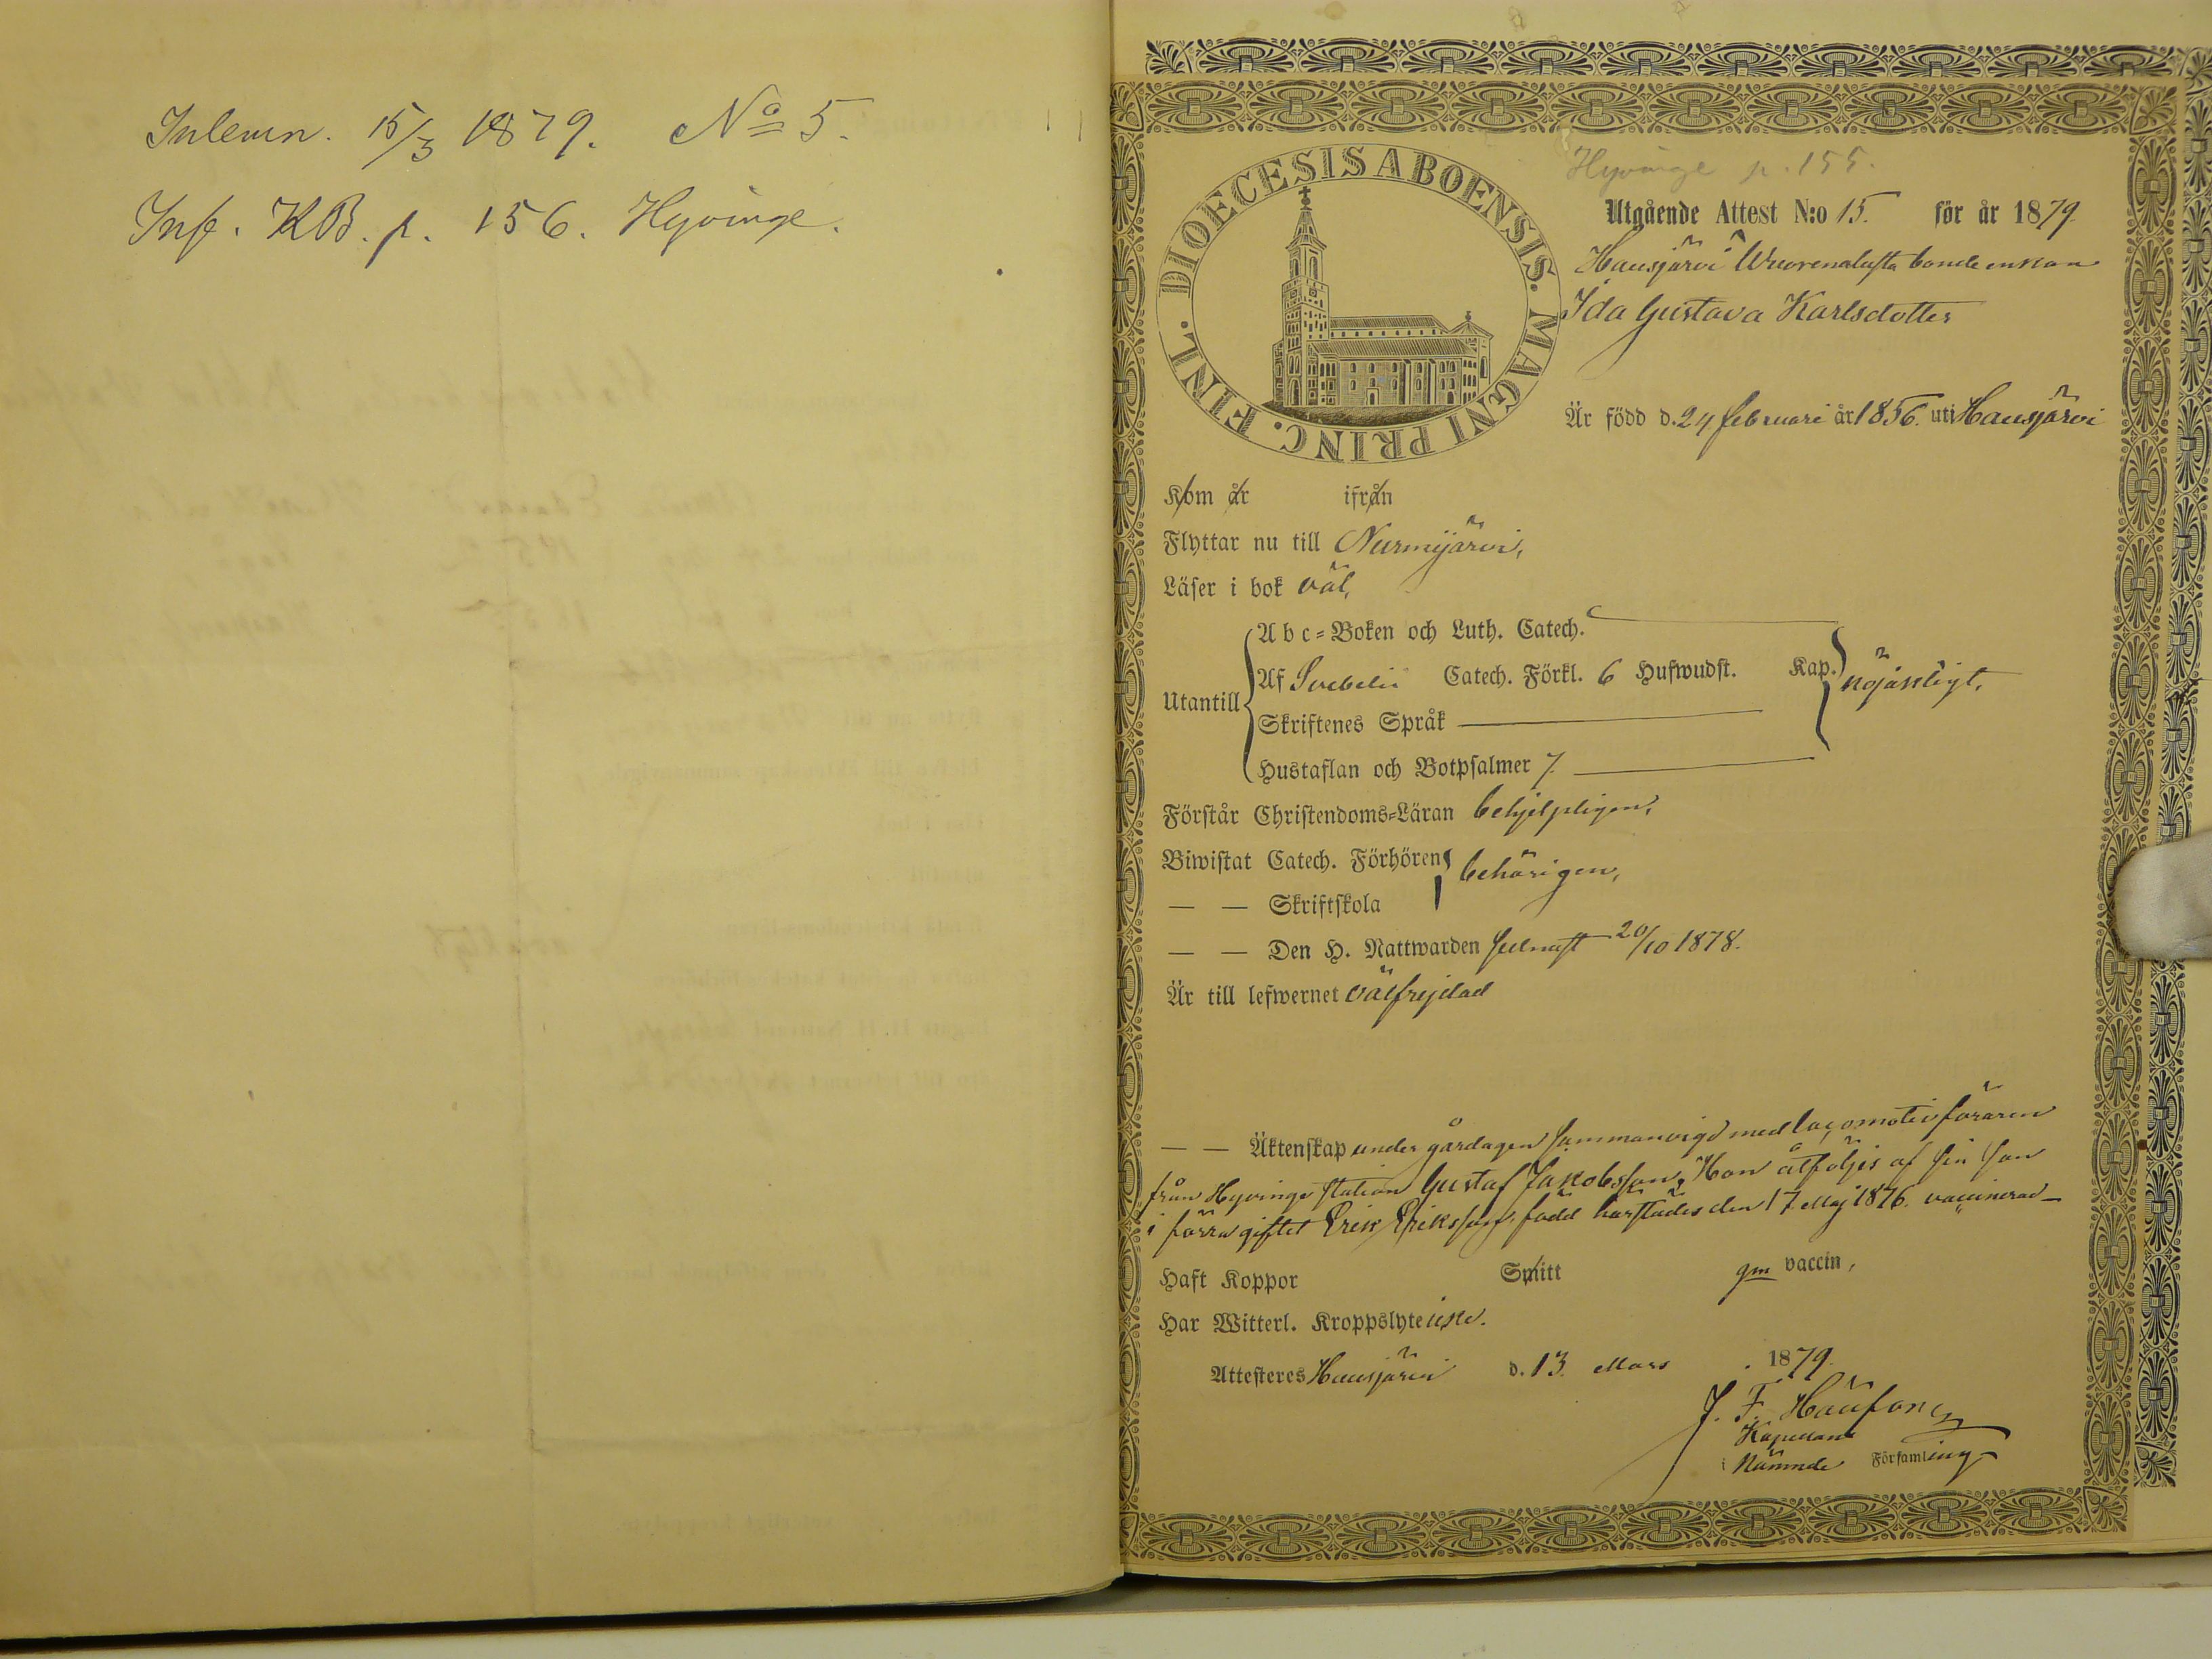 Inlemn. 15/3 1879. No 5.
Inf. KB. p. 156. Hyvinge.
Hyvinge p. 155.
DIOECESIS ABOENSIS. MAGNI PRINC. FINL.
Utgående Attest N:o 15. för år 1879.
Hausjärvi Wuorenalusta bonde enkan
Ida Gustava Karlsdotter
Är född d. 24 februari år 1856. uti Hausjärvi
Kom år ifrån
Flyttar nu till Nurmijärvi,
Läser i bok väl,
Utantill
Abc-Boken och Luth. Catech.
Af Svebelii Catech. Förkl. 6 Hufwudst. Kap. nöjaktigt.
Skriftenes Språk
Hustaflan och Botpsalmer 7.
Förstår Christendoms-Läran behjelpligen,
Biwistat Catech. Förhören behörigen,
— — Skriftskola
— — Den H. Nattwarden senast 20/10 1878.
Är till lefwernet välfrejdad
— — Äktenskap under gårdagen sammanvigd med locomotivföraren
från Hyvinge station Gustaf Jakobsson. Hon åtföljes af sin son
i förra giftet Erik Eriksson, född härstädes den 17 Maj 1876. vaccinerad—
Haft Koppor Smitt gm vaccin,
Har Witterl. Kroppslyte icke.
Attesteres Hausjärvi d. 13. Mars 1879.
J. F.
Kapellan
i Nämnde Församling